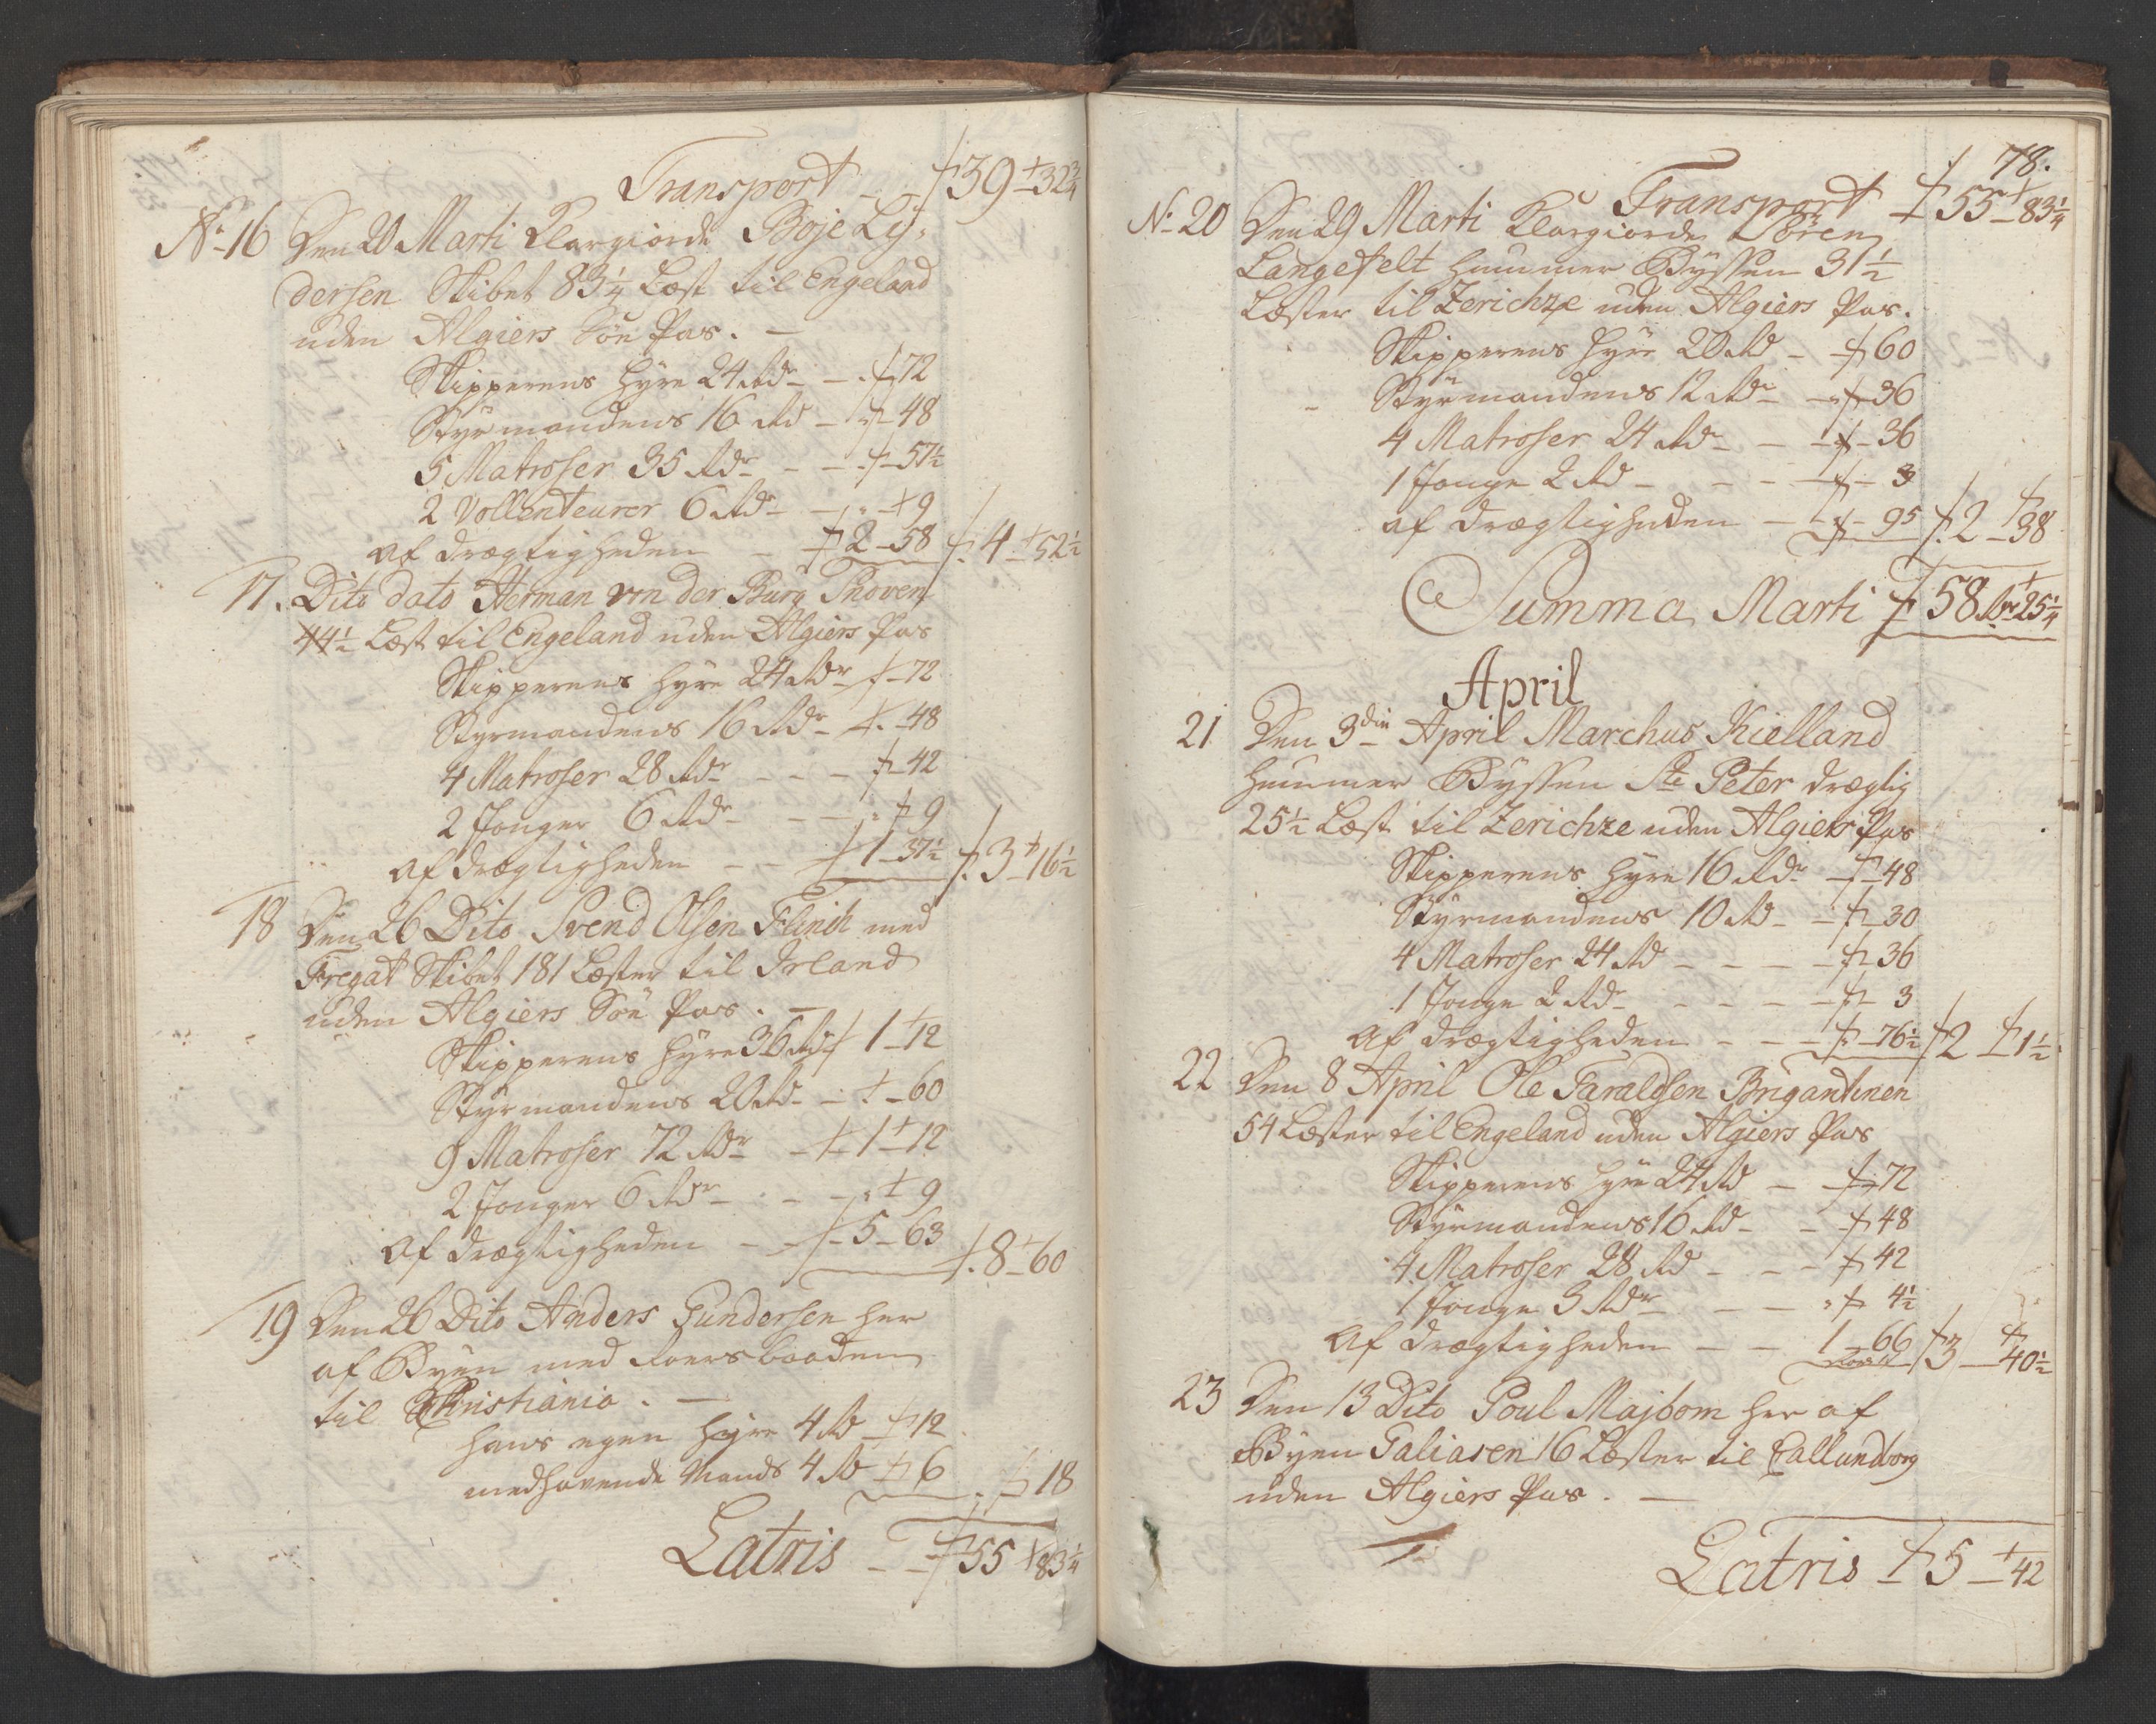 Transport - - 39 - 32 3/4
No 16 Den 20 Marti Klargiorde Boje Ly-
dersen Skibet 83 1/4 Læst til Engeland
uden Algiers Søe Pas. -
Skipperens Hyre 24 Rdr - - 72
Styrmandens 16 Rd - - 48
5 Matroser 35 Rdr - - - 57 1/2
2 Vollenteurer 6 Rdr - - 9
af drægtigheden - 2 - 58 4 - 52 1/2
17. Dito dato Herman von der Burg Snoven
44 1/2 Læst til Engeland uden Algiers Pas
Skipperens Hyre 24 Rdr - 72
Styrmandens 16 Rdr - 48
4 Matroser 28 Rdr - - - 42
2 Jonger 6 Rdr - - - 9
af drægtigheden - - 1 - 37 1/2 3 - 16 1/2
18 Den 26 Dito Svend Olsen Flinch med
Fregat Skibet 181 Læster til Irland
uden Algiers Søe Pas. -
Skipperens Hyre 36 Rdr 1 - 12
Styrmandens 20 Rdr - - 60
9 Matroser 72 Rdr - 1 - 12
2 Jonger 6 Rdr - - - 9
af drægtigheden - - 5 - 63 8 - 60
19 Den 26 Dito Anders Gundersen her
af Byen med Foersbaaden
til Christiania. -
hans egen Hyre 4 Rd - 12
medhavende Mands 4 Rd 6 18
Latris - - 55 - 83 1/4
78.
Transport - 55 - 83 1/4
No 20 Den 29 Marti Klargiorde Sören
Langefelt Hummer Byssen 31 1/2
Læster til Zerichze uden Algiers Pas.
Skipperens Hyre 20 Rd - 60
Styrmandens 12 Rdr - - 36
4 Matroser 24 Rdr - - - 36
1 Jonge 2 Rd - - - - 3
af drægtigheden - - 95 2 - 38
Summa Marti 58 Rdr 25 1/4
April
21 Den 3die April Marchus Kielland
Hummer Byssen Ste Peter drægtig
25 1/2 Læst til Zerichze uden Algiers Pas
Skipperens Hyre 16 Rdr - 48
Styrmandens 10 Rd - - 30
4 Matroser 24 Rd - - - - 36
1 Jonge 2 Rdr - - - - 3
Af drægtigheden - - - 76 1/2 2 - 1 1/2
22 Den 8 April Ole Taraldsen Brigantinen
54 Læster til Engeland uden Algiers Pas
Skipperens Hyre 24 Rd - 72
Styrmandens 16 Rd - - 48
4 Matroser 28 Rd - - - 42
1 Jonge 3 Rdr - - - 4 1/2
Af drægtigheden - - 1 - 66 3 - 40 1/2
23 Den 13 Dito Poul Majbom her af
Byen Galiasen 16 Læster til Callundborg
uden Algiers Pas. -
Latris - 5 - 42